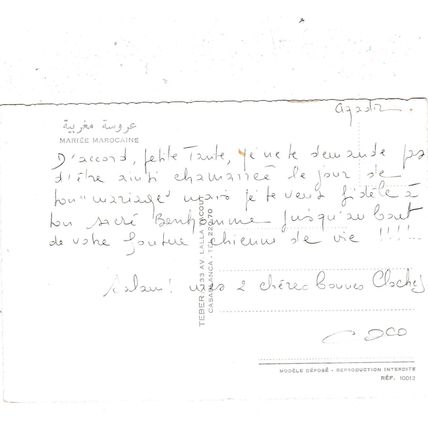 Agadir
عروسة مغربية
MARIÉE MAROCAINE
D'accord, petite Tante, je ne te demande pas
d'être ainsi chamarrée le jour de
ton "mariage" mais je te veux fidèle à
ton sacré Benhomme jusqu'au bout
de votre foutue chienne de vie !!!!
Salam ! mes 2 chères bonnes Cloches
COCO
TEBER - 33 AV. LALLA YACOUT
CASABLANCA - TEL.
MODÈLE DÉPOSÉ - REPRODUCTION INTERDITE
RÉF. 10012